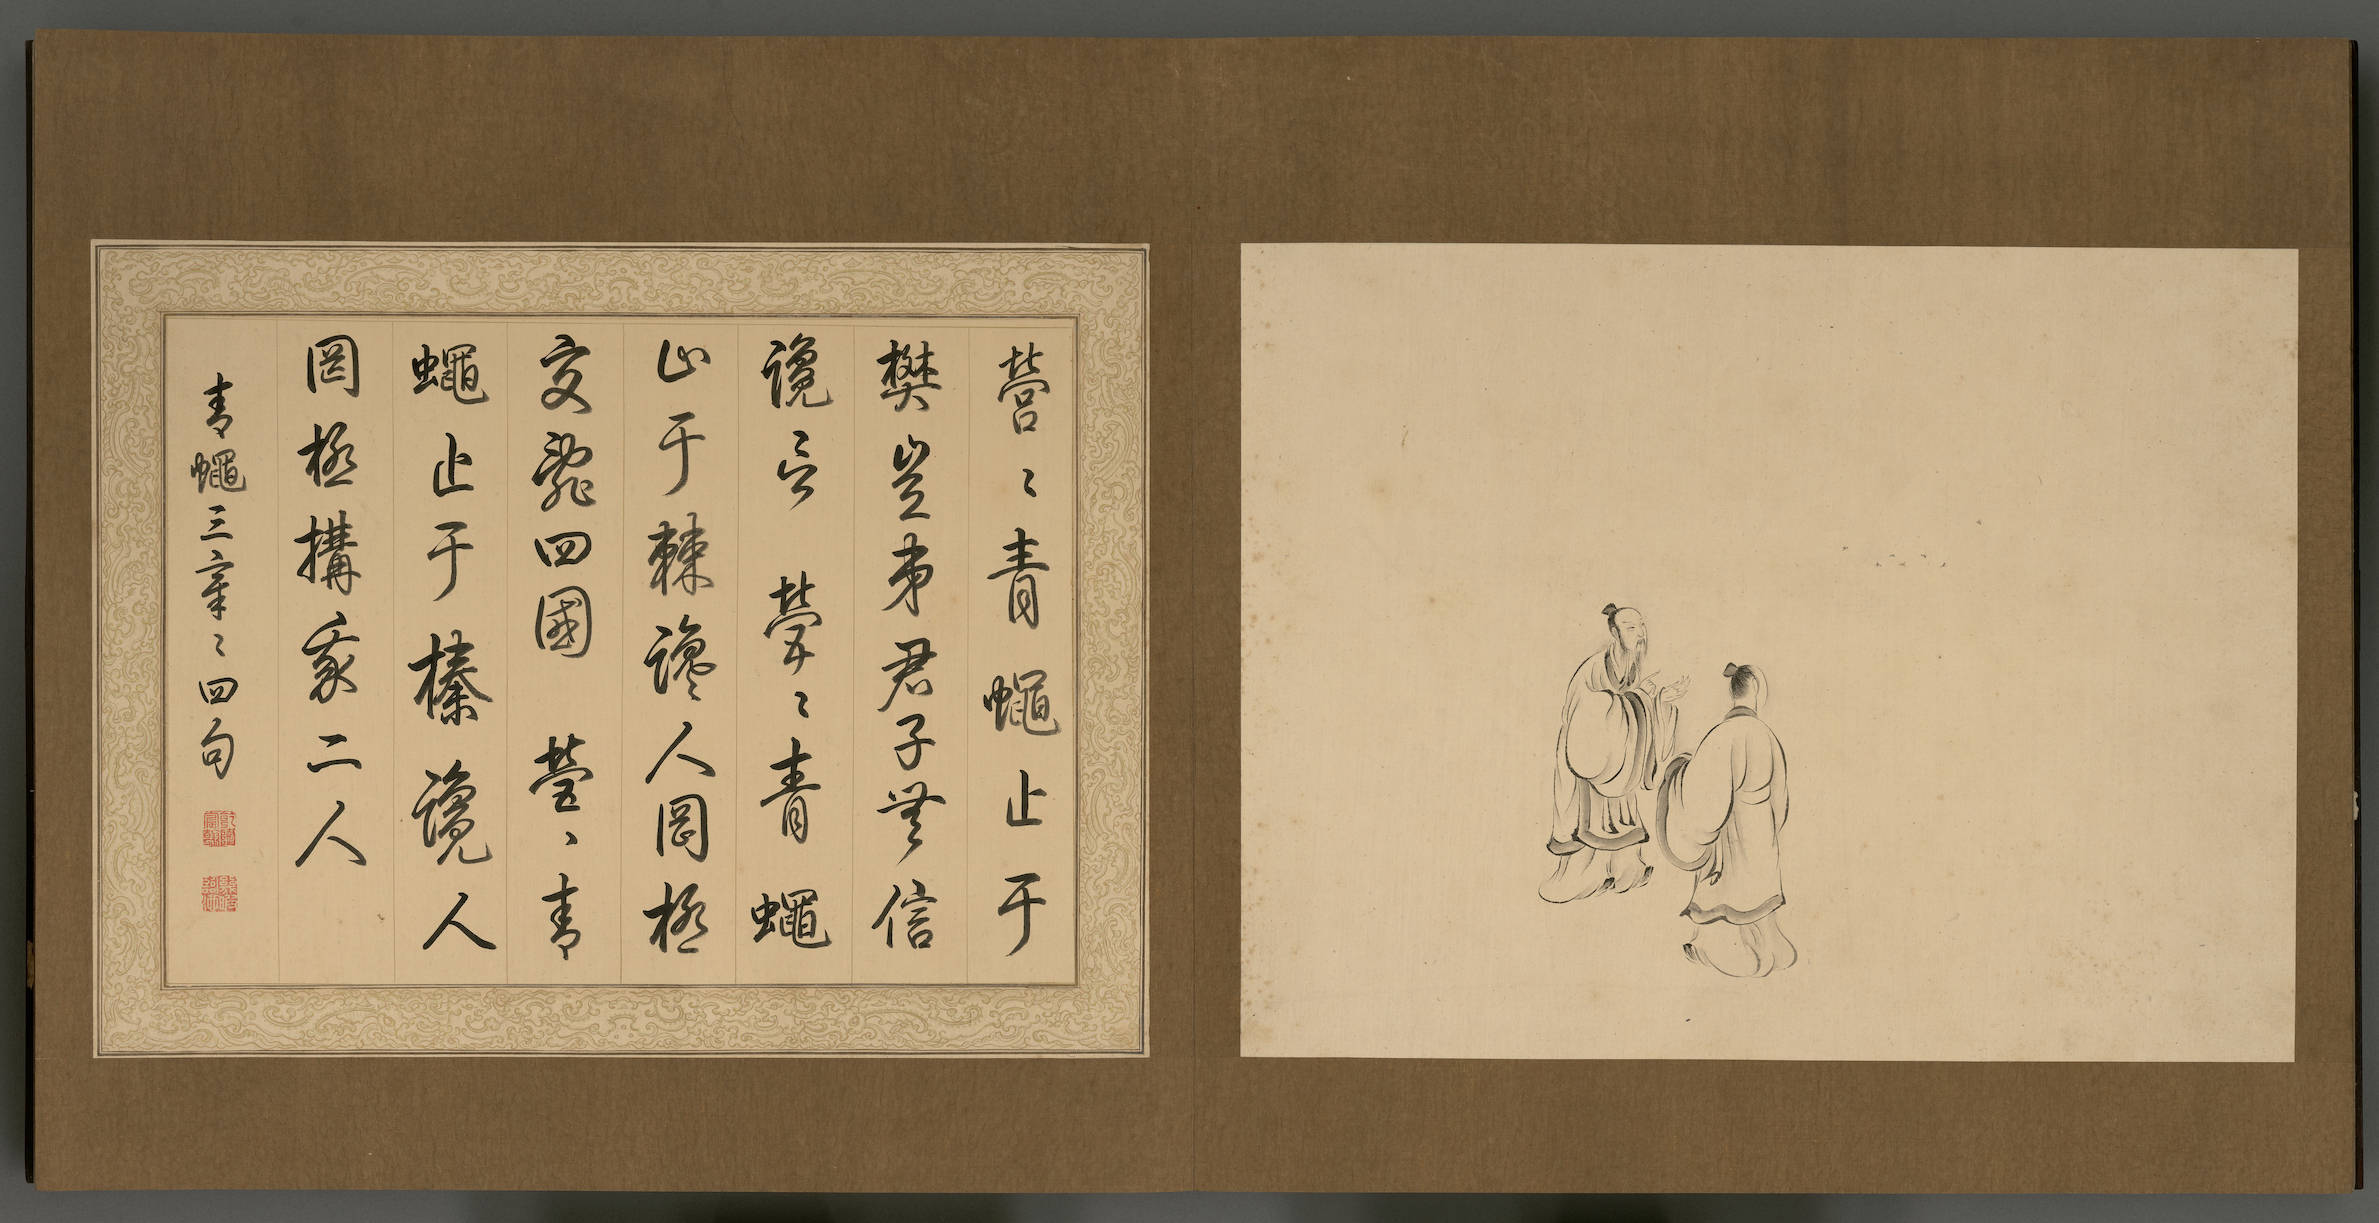 營〻青蠅止于
樊豈弟君子無信
讒言 營〻青蠅
止于棘讒人罔極
交亂四國 營〻青
蠅止于榛讒人
罔極搆我二人
青蠅三章〻四句
乾隆宸翰